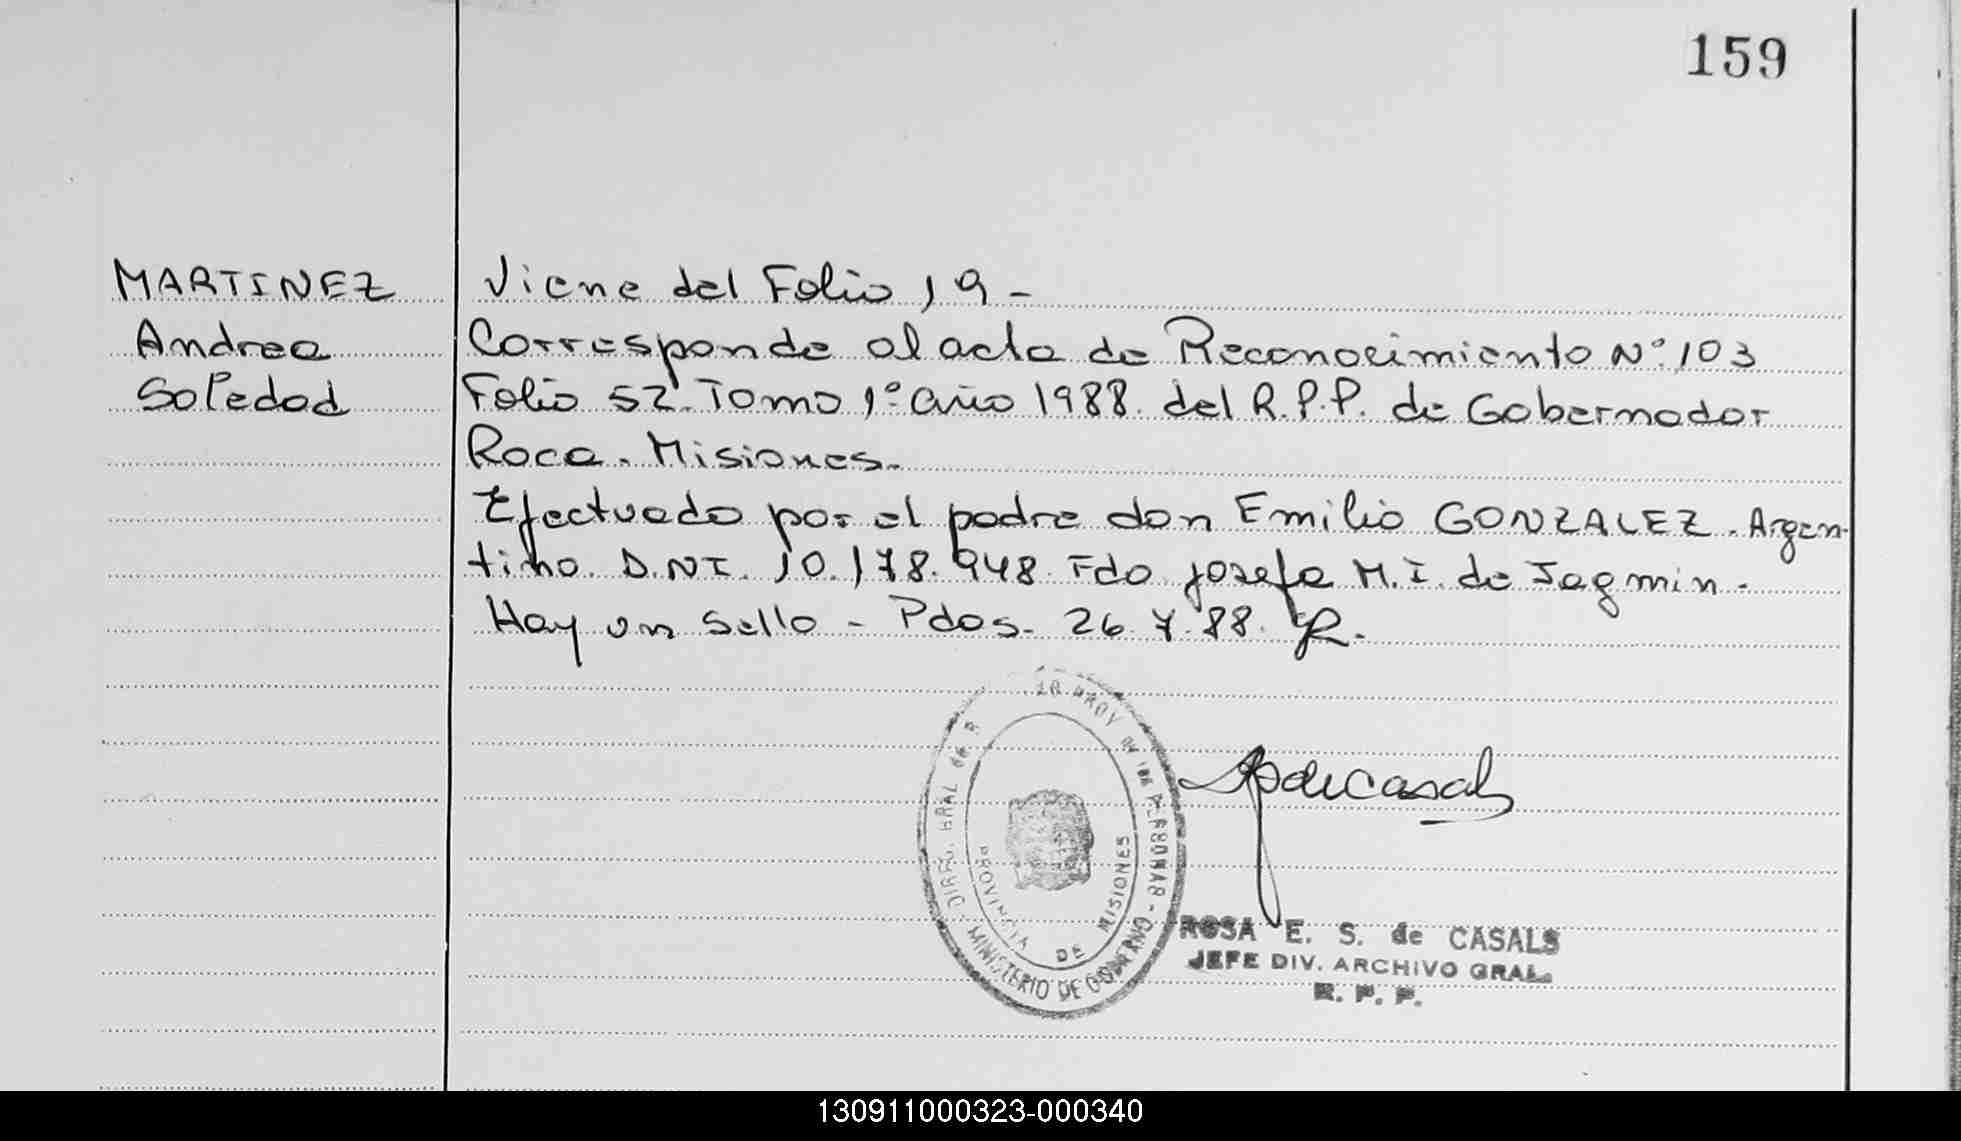 159
MARTINEZ
Andrea
Soledad
Viene del Folio 19-
Corresponde al acta de Reconocimiento Nº 103
Folio 52. Tomo 1º año 1988. del R.P.P. de Gobernador
Roca. Misiones.
Efectuado por el padre don Emilio GONZALEZ. Argen-
tino. D.N.I. 10.178.948. Fdo Josefa M.I. de Jagmin.
Hay un sello - Pdas. 26.7.88.
PROVINCIA DE MISIONES
MINISTERIO DE GOBIERNO
ROSA E. S. de CASALS
JEFE DIV. ARCHIVO GRAL.
R. P. P.
130911000323-000340